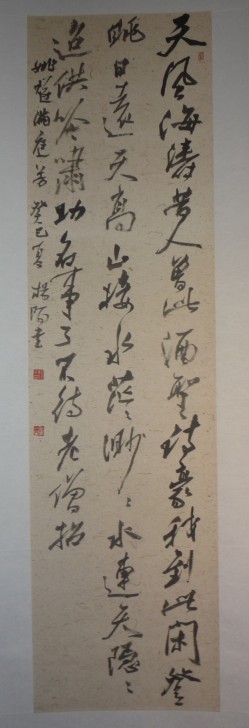 天风海濤昔人曾此酒聖詩豪我到此闲登
眺日遠天高山接水茫〻渺〻水連天隱〻
迢供吟嘯功名事了不待老僧招
姚燧滿庭芳 癸巳夏 书